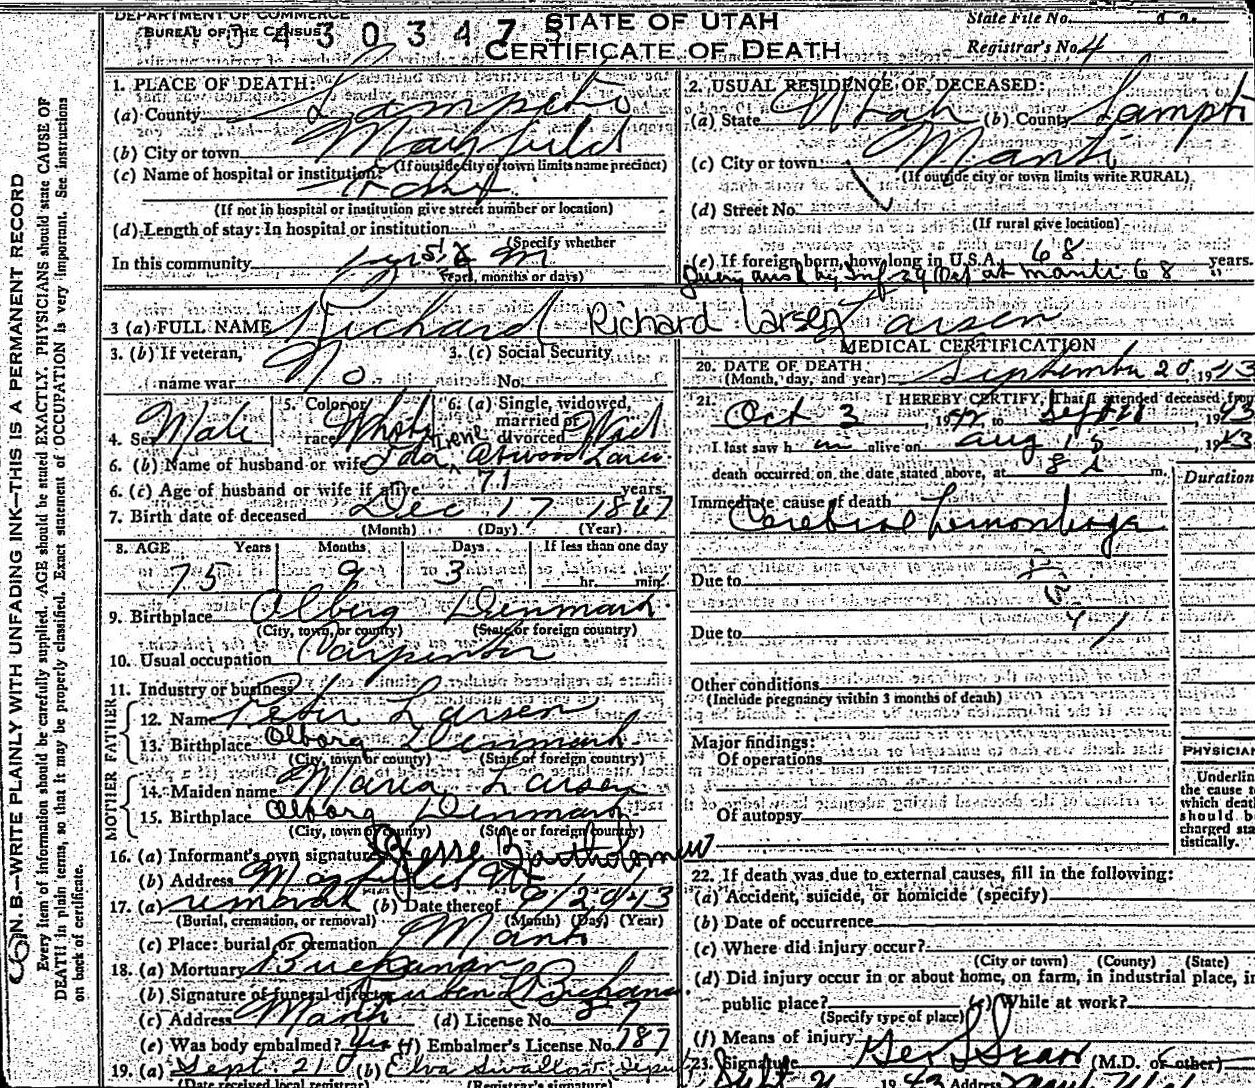 DEPARTMENT OF COMMERCE
BUREAU OF THE CENSUS
STATE OF UTAH
CERTIFICATE OF DEATH
State File No.
Registrar's No. 4
N. B.—WRITE PLAINLY WITH UNFADING INK—THIS IS A PERMANENT RECORD
Every item of information should be carefully supplied. AGE should be stated EXACTLY. PHYSICIANS should state CAUSE OF
DEATH in plain terms, so that it may be properly classified. Exact statement of OCCUPATION is very important. See instructions
on back of certificate.
1. PLACE OF DEATH:
(a) County Sanpete
(b) City or town Mayfield
(If outside city or town limits name precinct)
(c) Name of hospital or institution:
(If not in hospital or institution give street number or location)
(d) Length of stay: In hospital or institution
(Specify whether
In this community
years, months or days)
2. USUAL RESIDENCE OF DECEASED:
(a) State Utah (b) County
(c) City or town Manti
(If outside city or town limits write RURAL)
(d) Street No.
(If rural give location)
(e) If foreign born, how long in U.S.A. 68 years.
at Manti 68
3 (a) FULL NAME Richard Richard Larsen Larsen
3. (b) If veteran, name war No
3. (c) Social Security No.
4. Sex Male
5. Color or race White
6. (a) Single, widowed, married or divorced Wid
6. (b) Name of husband or wife Ida Irene Atwood Larsen
6. (c) Age of husband or wife if alive 71 years
7. Birth date of deceased Dec 17 1867
(Month) (Day) (Year)
8. AGE Years Months Days If less than one day
75 9 3 hr. min.
9. Birthplace Alborg Denmark
(City, town, or county) (State or foreign country)
10. Usual occupation Carpenter
11. Industry or business
FATHER
12. Name Peter Larsen
13. Birthplace Alborg Denmark
(City, town or county) (State of foreign country)
MOTHER
14. Maiden name Maria Larsen
15. Birthplace Alborg Denmark
(City, town or county) (State or foreign country)
16. (a) Informant's own signature Jesse Bartholomew
(b) Address Mayfield Ut
17. (a) removal (b) Date thereof 9/29/43
(Burial, cremation, or removal) (Month) (Day) (Year)
(c) Place: burial or cremation Manti
18. (a) Mortuary Buchanan
(b) Signature of funeral director Reuben L Buchanan
(c) Address Manti (d) License No.
(e) Was body embalmed? yes (f) Embalmer's License No. 187
19. (a) Sept. 21 (b) Elva Swallow Deputy
(Date received local registrar) (Registrar's signature)
MEDICAL CERTIFICATION
20. DATE OF DEATH
(Month, day, and year) September 20, 1943
21. I HEREBY CERTIFY, That I attended deceased from
Oct 3, 1942, to Sept, 1943
I last saw h im alive on Aug 15 1943
death occurred on the date stated above, at m.
Duration
Immediate cause of death
Cerebral hemorrhage
Due to
Due to
Other conditions
(Include pregnancy within 3 months of death)
Major findings:
Of operations
Of autopsy
PHYSICIAN
Underlin
the cause t
which deat
should b
charged sta
tistically.
22. If death was due to external causes, fill in the following:
(a) Accident, suicide, or homicide (specify)
(b) Date of occurrence
(c) Where did injury occur?
(City or town) (County) (State)
(d) Did injury occur in or about home, on farm, in industrial place, in
public place? (e) While at work?
(Specify type of place)
(f) Means of injury
23. Signature (M.D. or other)
1943 Address